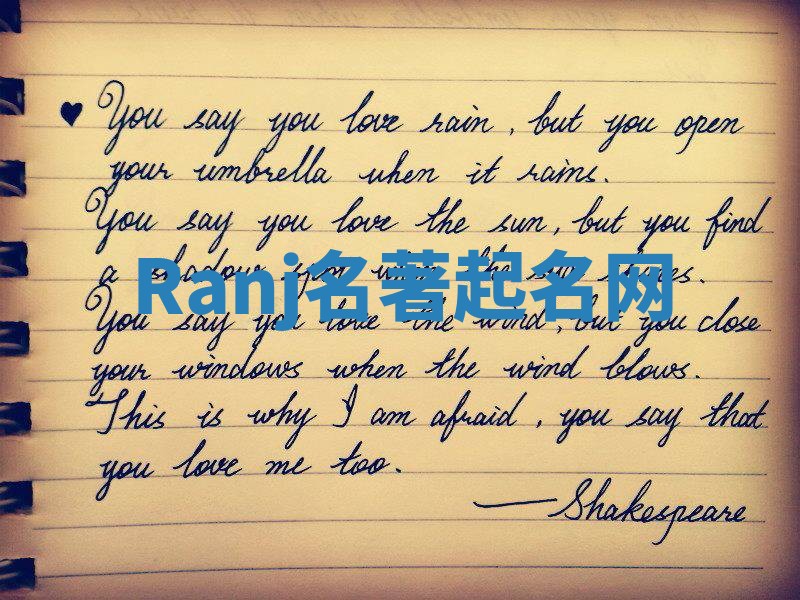 ♥ You say you love rain, but you open
your umbrella when it rains.
You say you love the sun, but you find
a shadow spot when the sun shines.
Ranj名著起名网
You say you love the wind, but you close
your windows when the wind blows.
This is why I am afraid, you say that
you love me too.
—Shakespeare